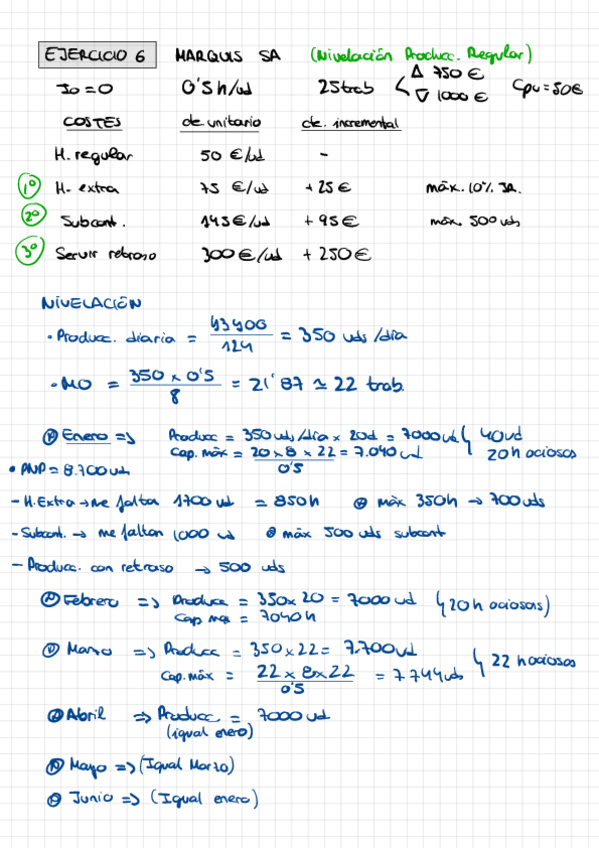 EJERCICIO 6 MARQUIS SA (Nivelación Producc. Regular)
Jo = 0 0'5 h/ud 25 trab < Δ 750 € ∇ 1000 € Cpu = 50€
COSTES cte. unitario cte. incremental
H. regular 50 €/ud -
1º H. extra 75 €/ud + 25 € máx. 10% JR.
2º Subcont. 145 €/ud + 95 € máx. 500 uds
3º Servir retraso 300 €/ud + 250 €
NIVELACIÓN
• Producc. diaria = 43400 / 124 = 350 uds /día
• MO = 350 x 0'5 / 8 = 21'87 ≃ 22 trab.
Enero => Producc = 350 uds/día x 20d = 7000 ud { 40 ud
Cap. máx = 20 x 8 x 22 / 0'5 = 7.040 ud 20h ociosas
• PNP = 8.700 uds
- H. Extra → me faltan 1700 ud = 850h máx 350h → 700 uds
- Subcont. → me faltan 1000 ud máx 500 uds subcont
- Producc. con retraso → 500 uds
Febrero => Producc = 350 x 20 = 7000 ud { 20 h ociosas)
Cap max = 7040 h
Marzo => Producc = 350 x 22 = 7.700 ud { 22 h ociosas
Cap. máx = 22 x 8 x 22 / 0'5 = 7744 uds
Abril => Producc. = 7000 ud
(igual enero)
Mayo => (Igual Marzo)
Junio => (Igual enero)